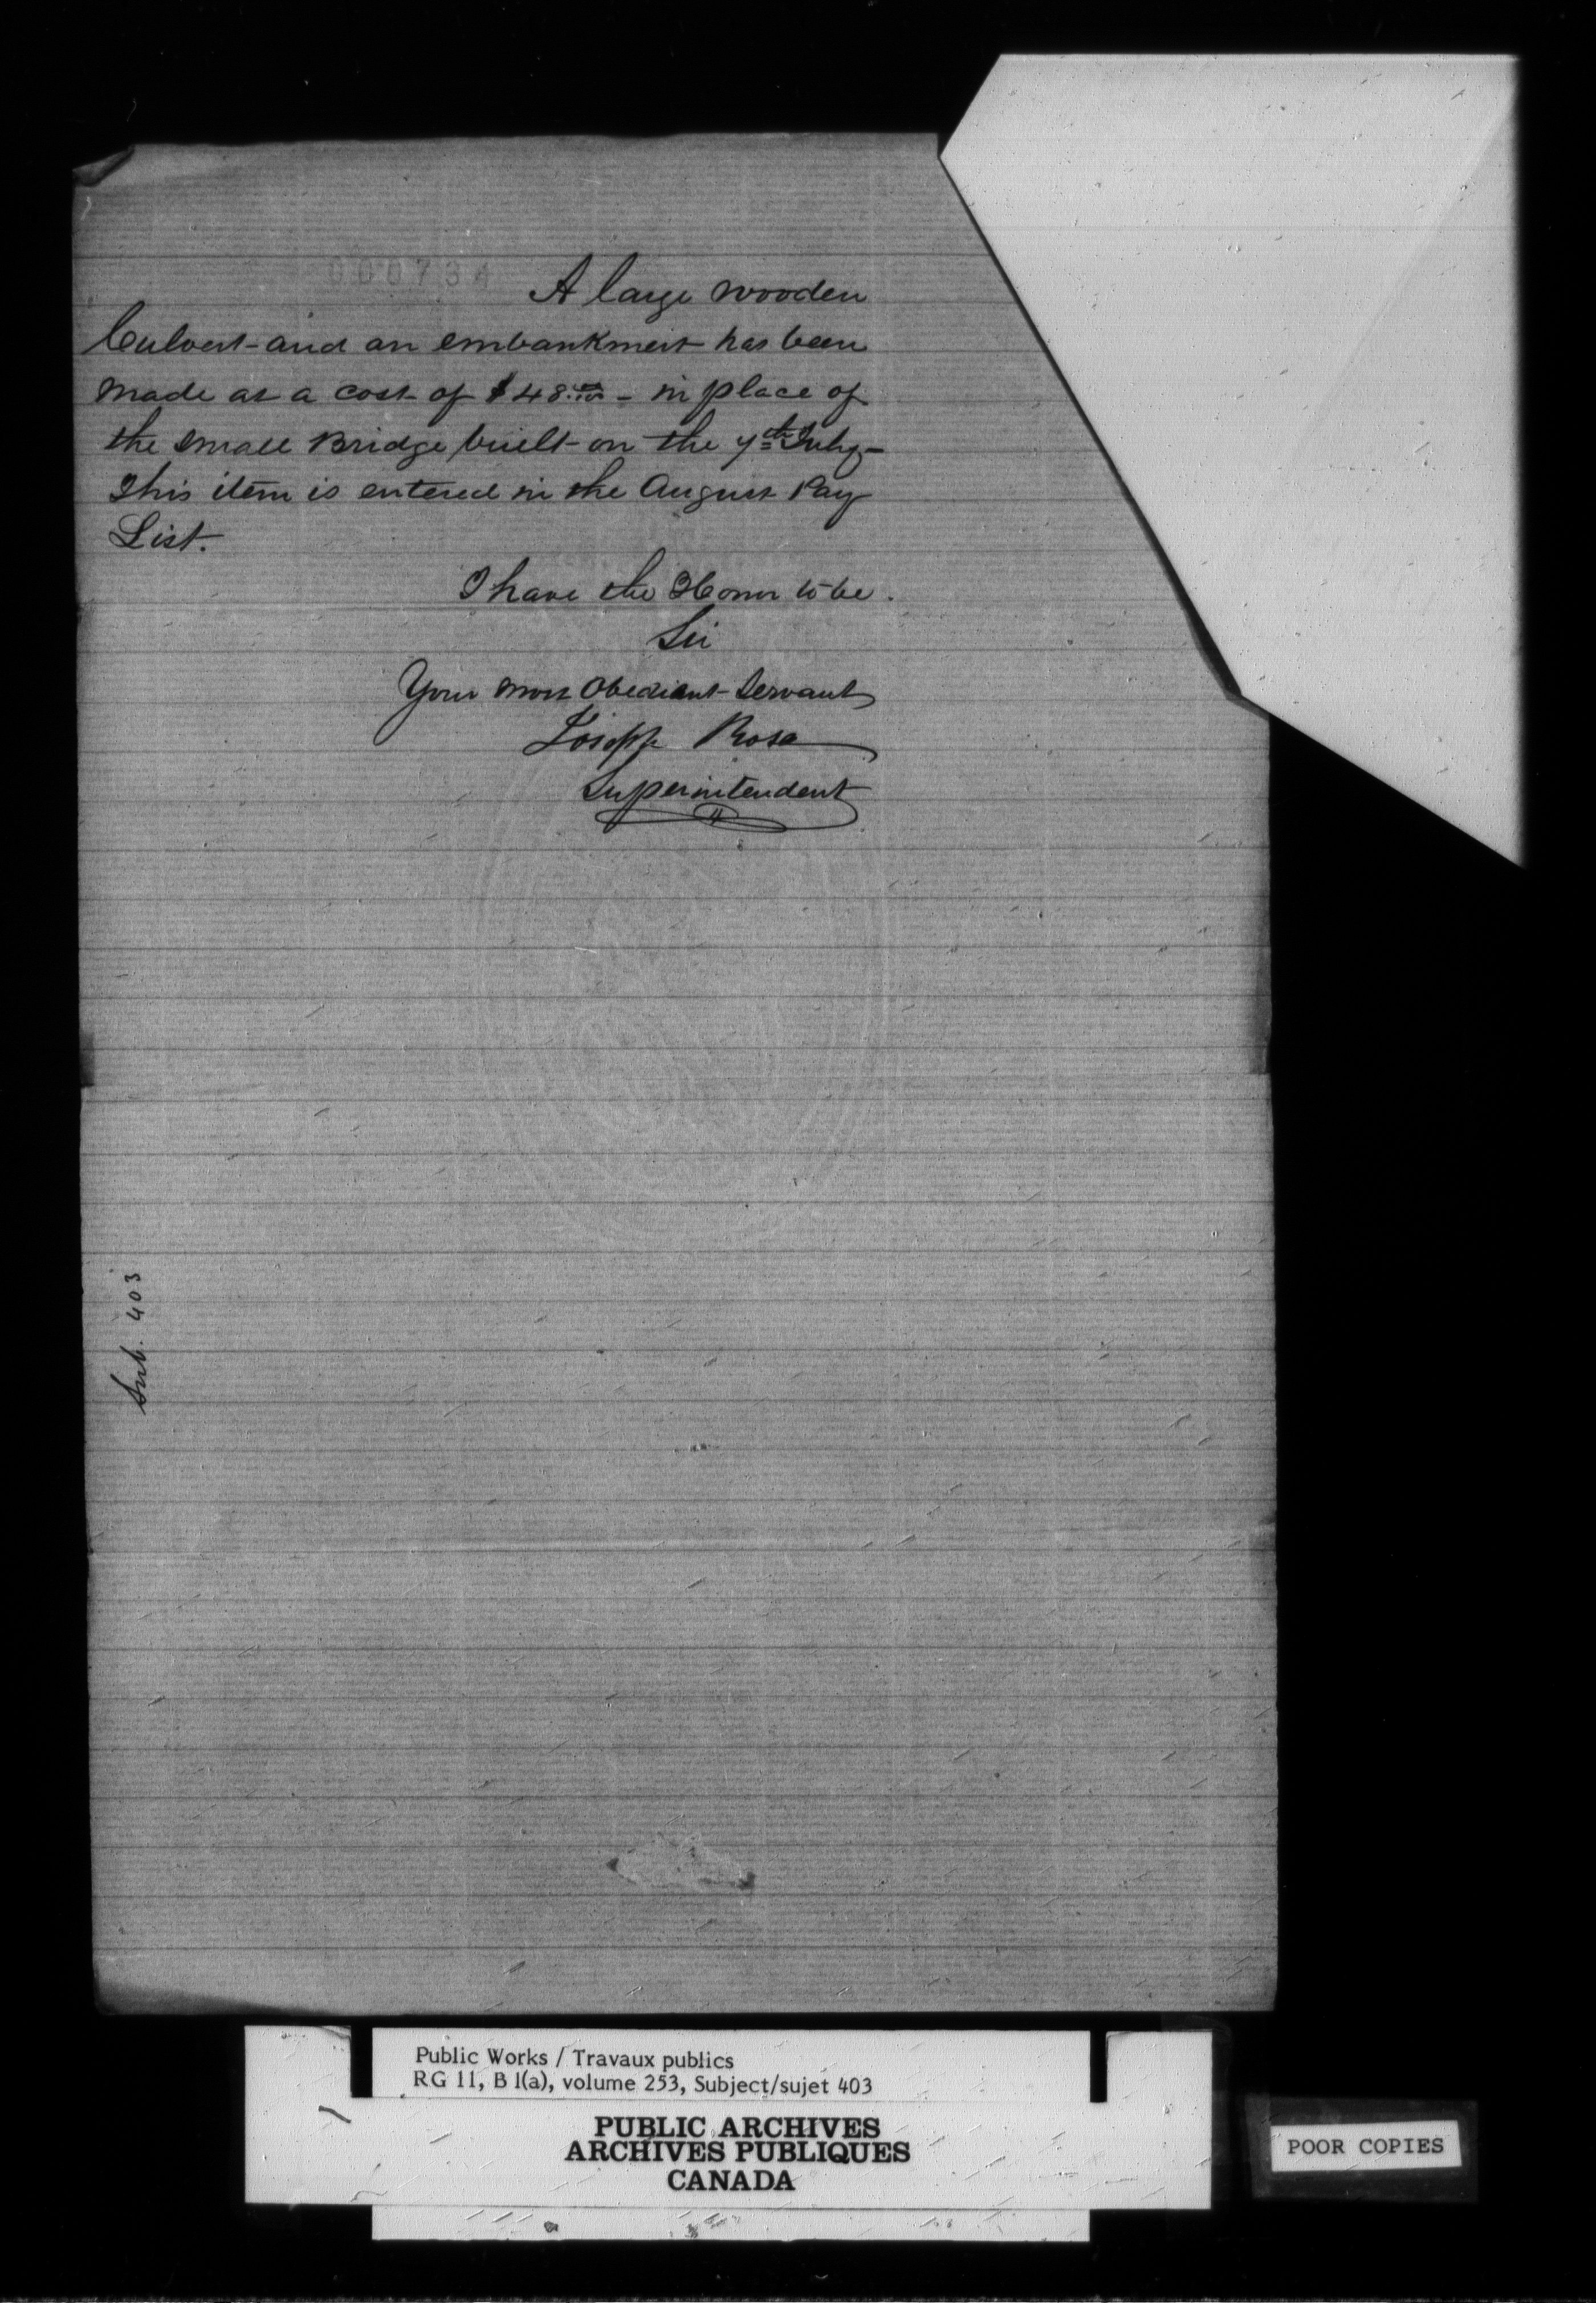 000734
A large wooden
Culvert and an embankment has been
made at a cost of $48.00/100 - in place of
the small Bridge built on the 7th July -
This item is entered in the August Pay
List.
I have the Honor to be.
Sir
Your most Obedient Servant
Joseph Rosa
Superintendent
Sub. 403
Public Works / Travaux publics
RG 11, B 1(a), volume 253, Subject/sujet 403
PUBLIC ARCHIVES
ARCHIVES PUBLIQUES
CANADA
POOR COPIES